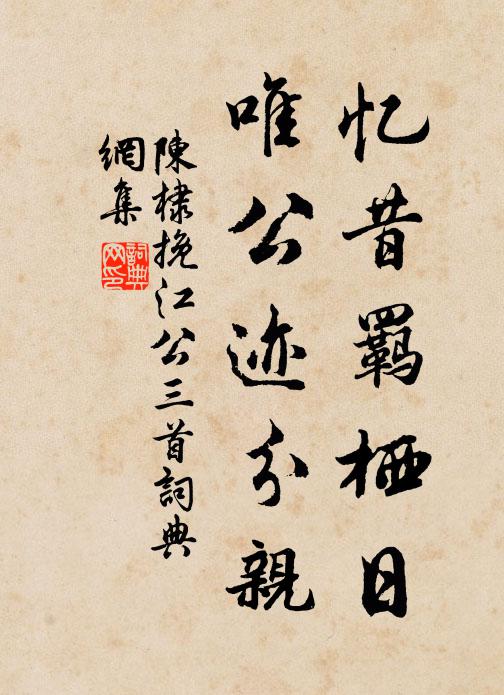 忆昔羁栖日
唯公迹分親
陳棣挽江公三首詞典
網集
詞典
网印